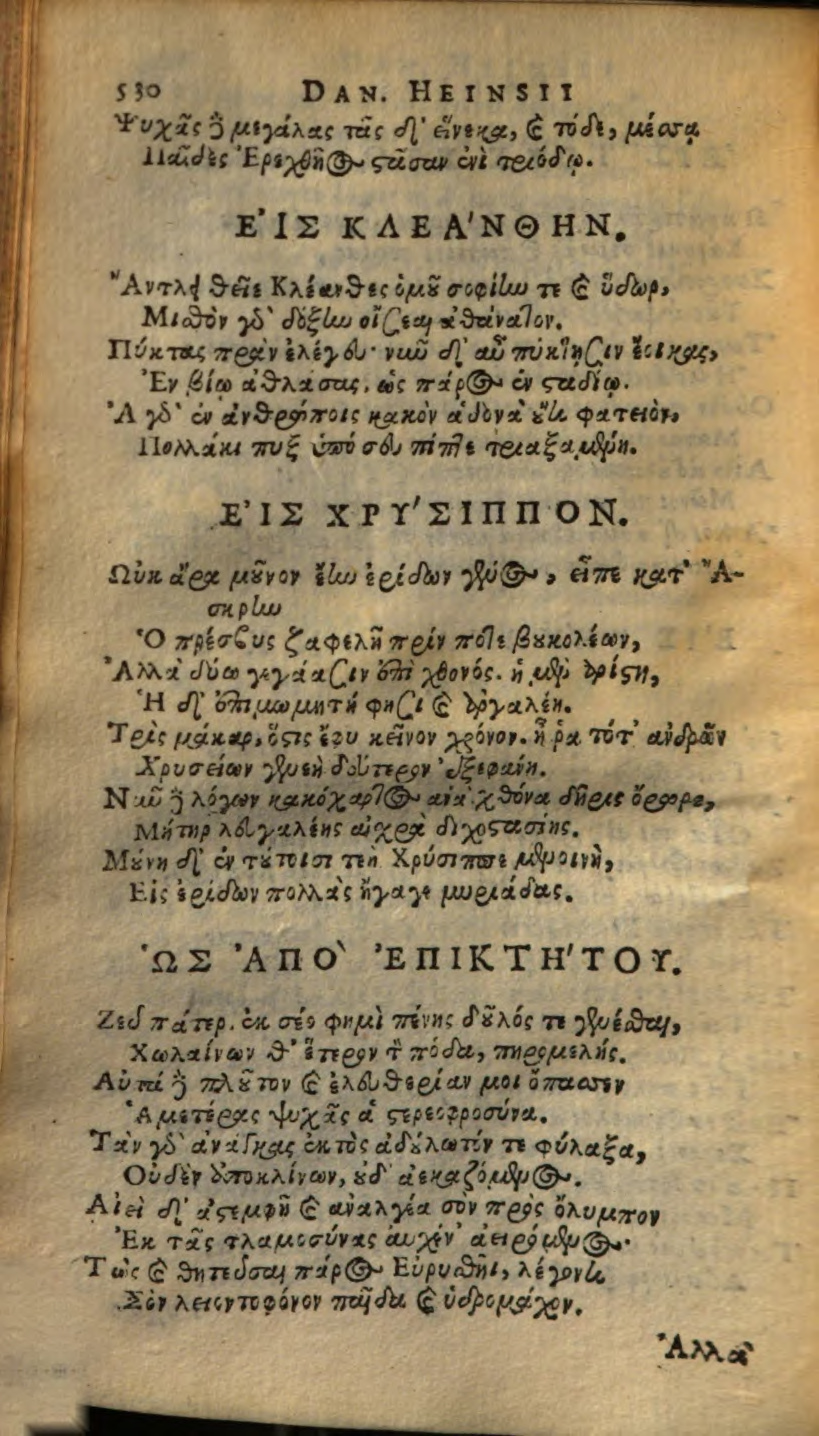 530 DAN. HEINSII
Ψυχᾶς ȣ μεγάλας τᾶς δ' εἵνεκα, καὶ τόδε, μέσσᾳ
Παῖδες Ἐρεχθῆος στᾶσαν ἐνὶ τριόδῳ.
ΕἸΣ ΚΛΕΑ'ΝΘΗΝ.
Ἄντλει θεῖε Κλέανθες ὁμοῦ σοφίην τε καὶ ὕδωρ,
Μισθὸν γὰρ δόξην οἴσεαι ἀθάνατον.
Πύκτας πρᾶν ἐλέγευ· νῦν δ' αὖ πύκτῃσιν ἔοικας,
Ἐν βίῳ ἀθλάσας, ὡς πάρος ἐν σταδίῳ.
Ἁ γὰρ ἐν ἀνθρώποις κακὸν ἁδονὰ οὐκ φατειὸν,
Πολλάκι πυξ ὑπό σευ πίπτε τριαξαμένη.
ΕἸΣ ΧΡΥ'ΣΙΠΠΟΝ.
Ωὐκ ἄρα μοῦνον ἔην ἐρίδων γένος, εἶπε κατ' Ἄ-
σκρην
Ὁ πρέσβυς ζαφελῆ πρίν ποτε βουκολέων,
Ἀλλὰ δύω γεγάασιν ἐπὶ χθονός. ἡ μὲν ἀρίστη,
Ἡ δ' ἐπιμωμητή φησι καὶ ἀργαλέη.
Τρὶς μάκαρ, ὅστις ἔφυ κεῖνον χρόνον. ἦ ῥα τότ' ἀνδρῶν
Χρυσείων γενεὴ δεύτερον ἐξεφαίνη.
Νῦν λόγων κακόχαρτος ἀνὰ χθόνα δῆρις ὄρωρε,
Μήτηρ λευγαλέης αὐχρὰ διχοστασίης.
Μούνη δ' ἐν τούτοισι τεὴ Χρύσιππε μενοινὴ,
Εἰς ἐρίδων πολλὰς ἤγαγε μυριάδας.
ὩΣ ἈΠΟ` ἘΠΙΚΤΗ'ΤΟΥ.
Ζεῦ πάτερ. ἐκ σέο φημὶ πένης δοῦλός τε γενέσθαι,
Χωλαίνων θ' ἕτερον τὸν πόδα, πηρομελής.
Αὐτὰ πλοῦτον καὶ ἐλευθερίαν μοι ὄπασσεν
Ἁμετέρας ψυχᾶς ἁ στερεοφροσύνα.
Τὰν γὰρ ἀνάγκας ἐκτὸς ἀδούλωτόν τε φύλαξα,
Οὐδὲν ὑποκλίνων, οὐδ' ἀεκαζόμενος.
Αἰεὶ δ' ἀστεμφῆ καὶ ἀναλγέα σὸν πρὸς ὄλυμπον
Ἐκ τᾶς τλαμοσύνας αὐχέν' ἀειρόμενος·
Τὼς καὶ θητεῦσαι πάρος Εὐρυσθῆι, λέγοντι
Σὸν λειοντοφόνον παῖδα καὶ ὑδρομάχον.
Ἀλλὰ